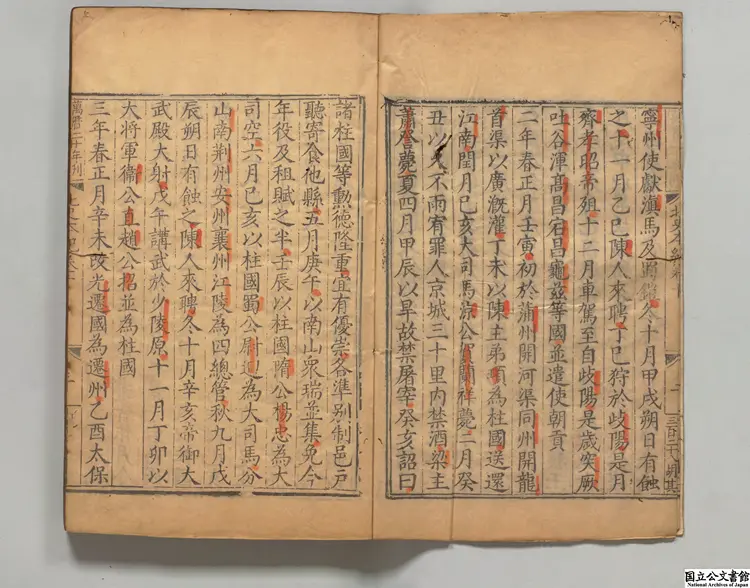 寧州使獻滇馬及蜀鎧冬十月甲戌朔日有蝕
之十一月乙巳陳人來聘丁巳狩於歧陽是月
齊孝昭帝殂十二月車駕至自歧陽是歲突厥
吐谷渾高昌宕昌龜茲等國並遣使朝貢
二年春正月壬寅初於蒲州開河渠同州開龍
首渠以廣溉灌丁未以陳主弟頊為柱國送還
江南閏月己亥大司馬涼公賀蘭祥薨二月癸
丑以久不雨宥罪人京城三十里內禁酒梁主
蕭詧薨夏四月甲辰以旱故禁屠宰癸亥詔曰
諸柱國等勲德隆重宜有優崇各準別制邑戶
聽寄食他縣五月庚午以南山衆瑞並集免今
年役及租賦之半壬辰以柱國隋公楊忠為大
司空六月己亥以柱國蜀公尉迥為大司馬分
山南荆州安州襄州江陵為四總管秋九月戊
辰朔日有蝕之陳人來聘冬十月辛亥帝御大
武殿大射戊午講武於少陵原十一月丁卯以
大將軍衞公直趙公招並為柱國
三年春正月辛未改光遷國為遷州乙酉太保
萬曆二十年刊
国立公文書館
National Archives of Japan